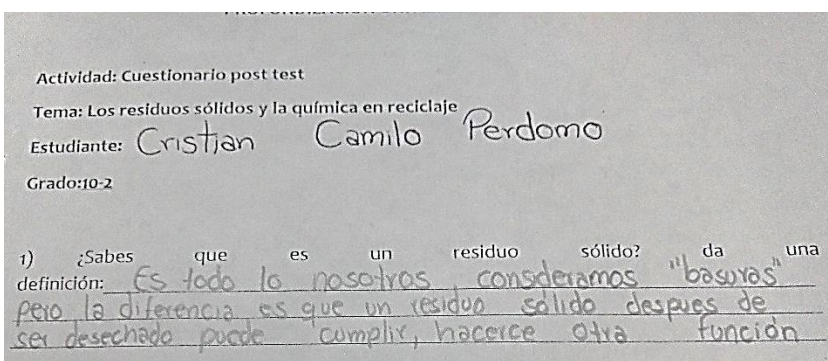 Actividad: Cuestionario post test
Tema: Los residuos sólidos y la química en reciclaje
Estudiante: Cristian Camilo Perdomo
Grado:10-2
1) ¿Sabes que es un residuo sólido? da una
definición: Es todo lo nosotros consideramos "basuras"
pero la diferencia es que un residuo solido despues de
ser desechado puede cumplir, hacerce otra función